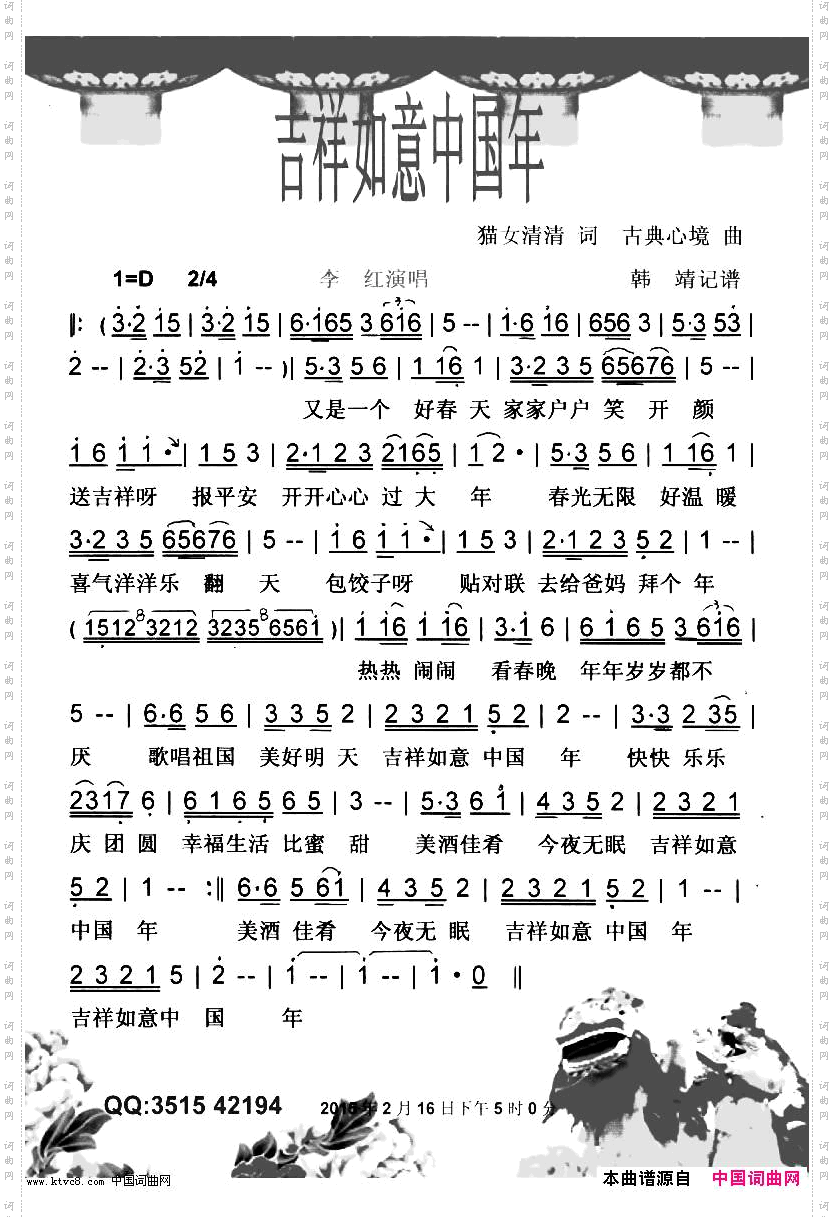 吉祥如意中国年
猫女清清 词 古典心境 曲
1=D 2/4 李 红演唱 韩 靖记谱
‖: ( 3·2 15 | 3·2 15 | 6·165 3 616 | 5 -- | 1·6 16 | 656 3 | 5·3 53 |
2 -- | 2·3 52 | 1 -- )| 5·3 5 6 | 1 16 1 | 3·2 3 5 65676 | 5 -- |
又是一个 好春 天 家家户户 笑 开 颜
1 6 1 1 · | 1 5 3 | 2·1 2 3 2165 | 1 2 · | 5·3 5 6 | 1 16 1 |
送吉祥呀 报平安 开开心心 过 大 年 春光无限 好温 暖
3·2 3 5 65676 | 5 -- | 1 6 1 1 · | 1 5 3 | 2·1 2 3 5 2 | 1 -- |
喜气洋洋乐 翻 天 包饺子呀 贴对联 去给爸妈 拜个 年
( 15123212 32356561 )| 1 16 1 16 | 3·1 6 | 6 1 6 5 3 616 |
热热 闹闹 看春晚 年年岁岁都不
5 -- | 6·6 5 6 | 3 3 5 2 | 2 3 2 1 5 2 | 2 -- | 3·3 2 35 |
厌 歌唱祖国 美好明 天 吉祥如意 中国 年 快快 乐乐
2317 6 | 6 1 6 5 6 5 | 3 -- | 5·3 6 1 | 4 3 5 2 | 2 3 2 1
庆 团 圆 幸福生活 比蜜 甜 美酒佳肴 今夜无眠 吉祥如意
5 2 | 1 -- :‖ 6·6 5 61 | 4 3 5 2 | 2 3 2 1 5 2 | 1 -- |
中国 年 美酒 佳肴 今夜无 眠 吉祥如意 中国 年
2 3 2 1 5 | 2 -- | 1 -- | 1 -- | 1 · 0 ‖
吉祥如意中 国 年
QQ:3515 42194 年2月16日下午5时0分
www.ktvc8.com 中国词曲网 本曲谱源自 中国词曲网